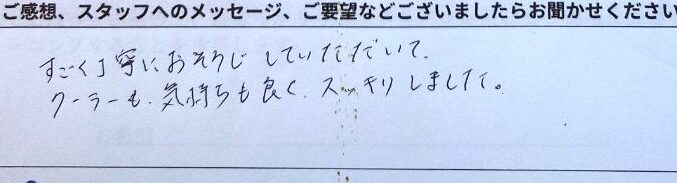 ご感想、スタッフへのメッセージ、ご要望などございましたらお聞かせください
すごく丁寧におそうじしていただいて、
クーラーも、気持ちも良く、スッキリしました。